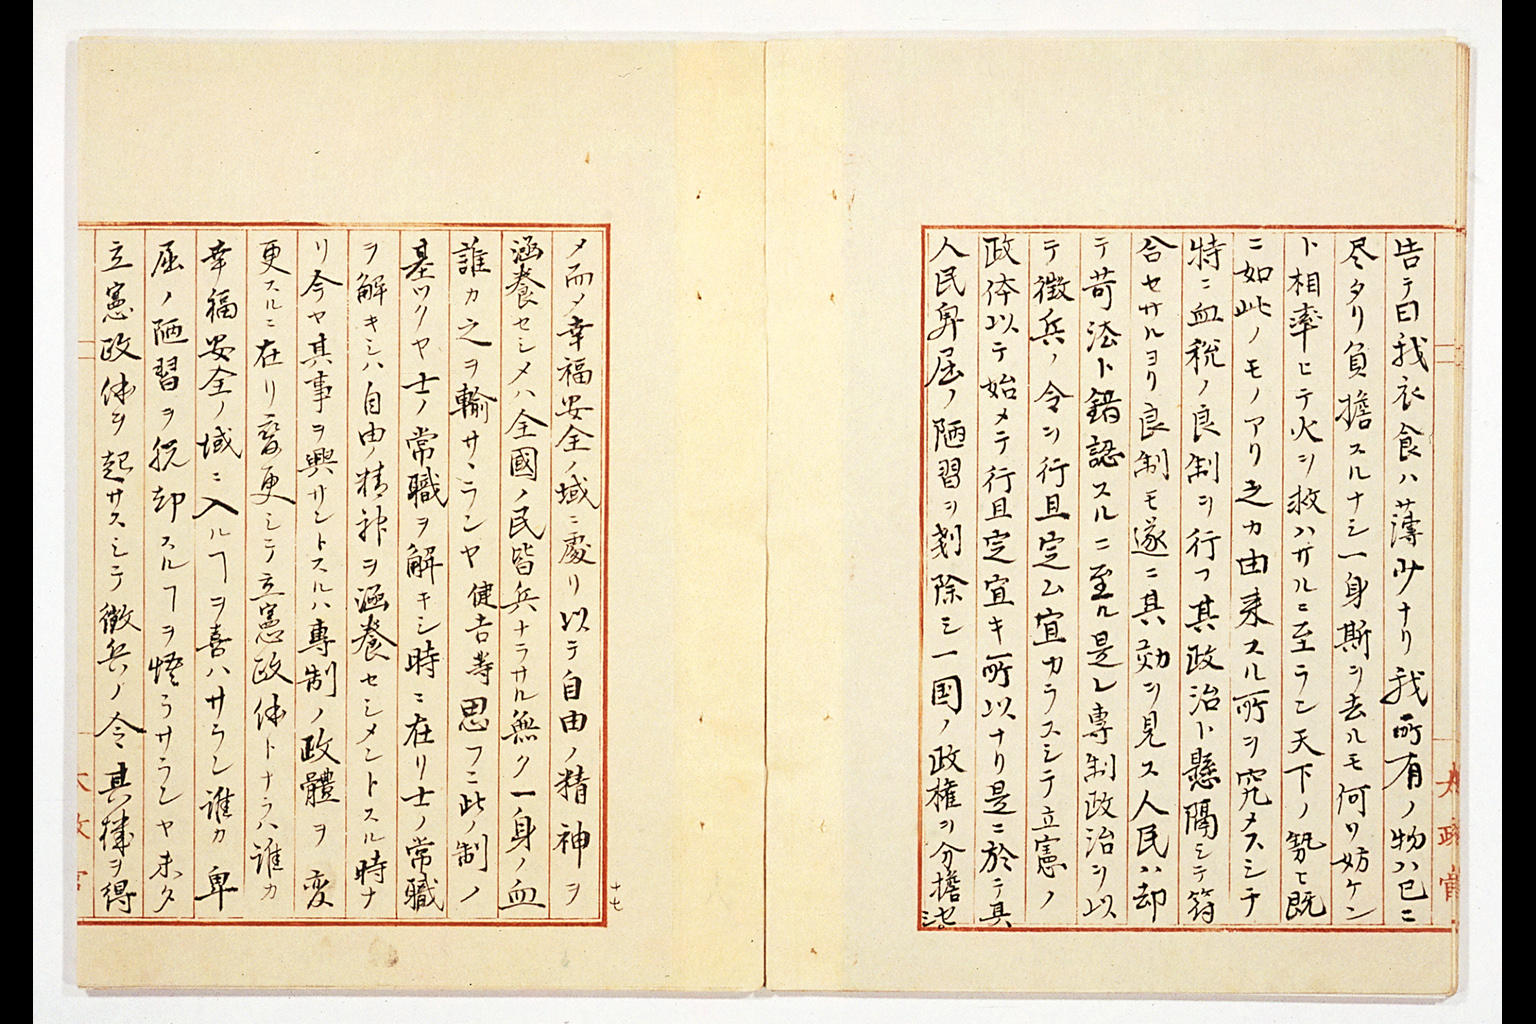 告テ曰我衣食ハ薄少ナリ我所有ノ物ハ已ニ
尽タリ負擔スルナシ一身斯ヲ去ルモ何ソ妨ケン
ト相率ヒテ火ヲ救ハサルニ至ラン天下ノ勢ヒ既
ニ如此ノモノアリ之カ由来スル所ヲ究メスシテ
特ニ血税ノ良制ヲ行フ其政治ト懸隔シテ符
合セサルヨリ良制モ遂ニ其効ヲ見ス人民ハ却
テ苛法ト錯認スルニ至ル是レ専制政治ヲ以
テ徴兵ノ令ヲ行且定ム宜カラスシテ立憲ノ
政体以テ始メテ行且定宜キ所以ナリ是ニ於テ其
人民卑屈ノ陋習ヲ剗除シ一国ノ政権ヲ分擔セ
シ
太政官
メ而メ幸福安全ノ域ニ處リ以テ自由ノ精神ヲ
涵養セシメハ全國ノ民皆兵ナラサル無ク一身ノ血
誰カ之ヲ輸サヽランヤ健吉等思フニ此ノ制ノ
基ツクヤ士ノ常職ヲ解キシ時ニ在リ士ノ常職
ヲ解キシハ自由ノ精神ヲ涵養セシメントスル時ナ
リ今ヤ其事ヲ興サントスルハ專制ノ政體ヲ変
更スルニ在リ変更シテ立憲政体トナラハ誰カ
幸福安全ノ域ニ入ルヿヲ喜ハサラン誰カ卑
屈ノ陋習ヲ脱却スルヿヲ悟ラサランヤ未タ
立憲政体ヲ起サスシテ徴兵ノ令其律ヲ得
十七
太政官